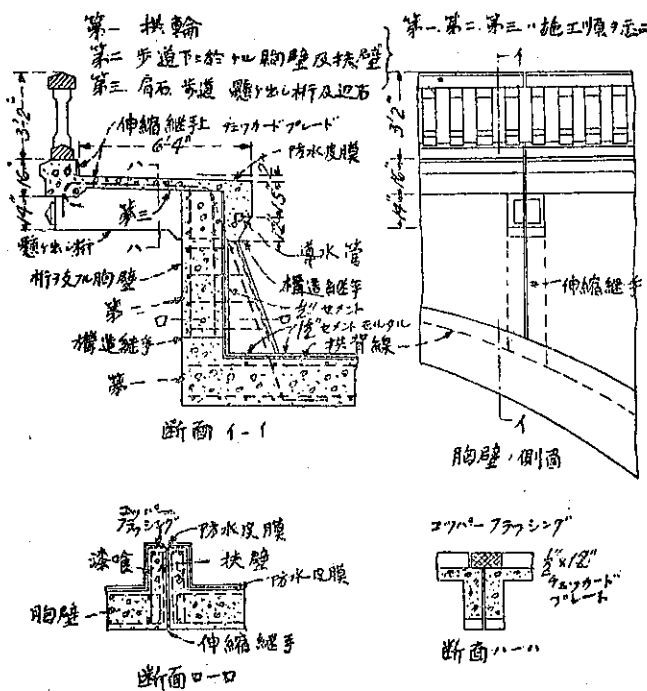 第一 拱輪
第二 歩道下ニ於ケル胸壁及扶壁
第三 肩石 歩道 懸ケ出シ桁及辺石
第一.第二.第三ハ施工順ヲ示ス
3'2"
16"
14"
伸縮継手上 チェッカードプレート
6'4"
防水皮膜
第三
ハ
ハ
懸ケ出シ桁
桁ヲ支フル胸壁
導水管
構造継手
第二
ロ
ロ
½"セメント
1½"セメントモルタル
構造継手
拱背線
第一
断面イ-イ
イ
3'2"
16"
14"
伸縮継手
イ
胸壁ノ側面
コッパー
フラッシング
防水皮膜
漆喰
扶壁
防水皮膜
胸壁
伸縮継手
断面ロ-ロ
コッパーフラッシング
½"×12"
チェッカード
プレート
断面ハ-ハ